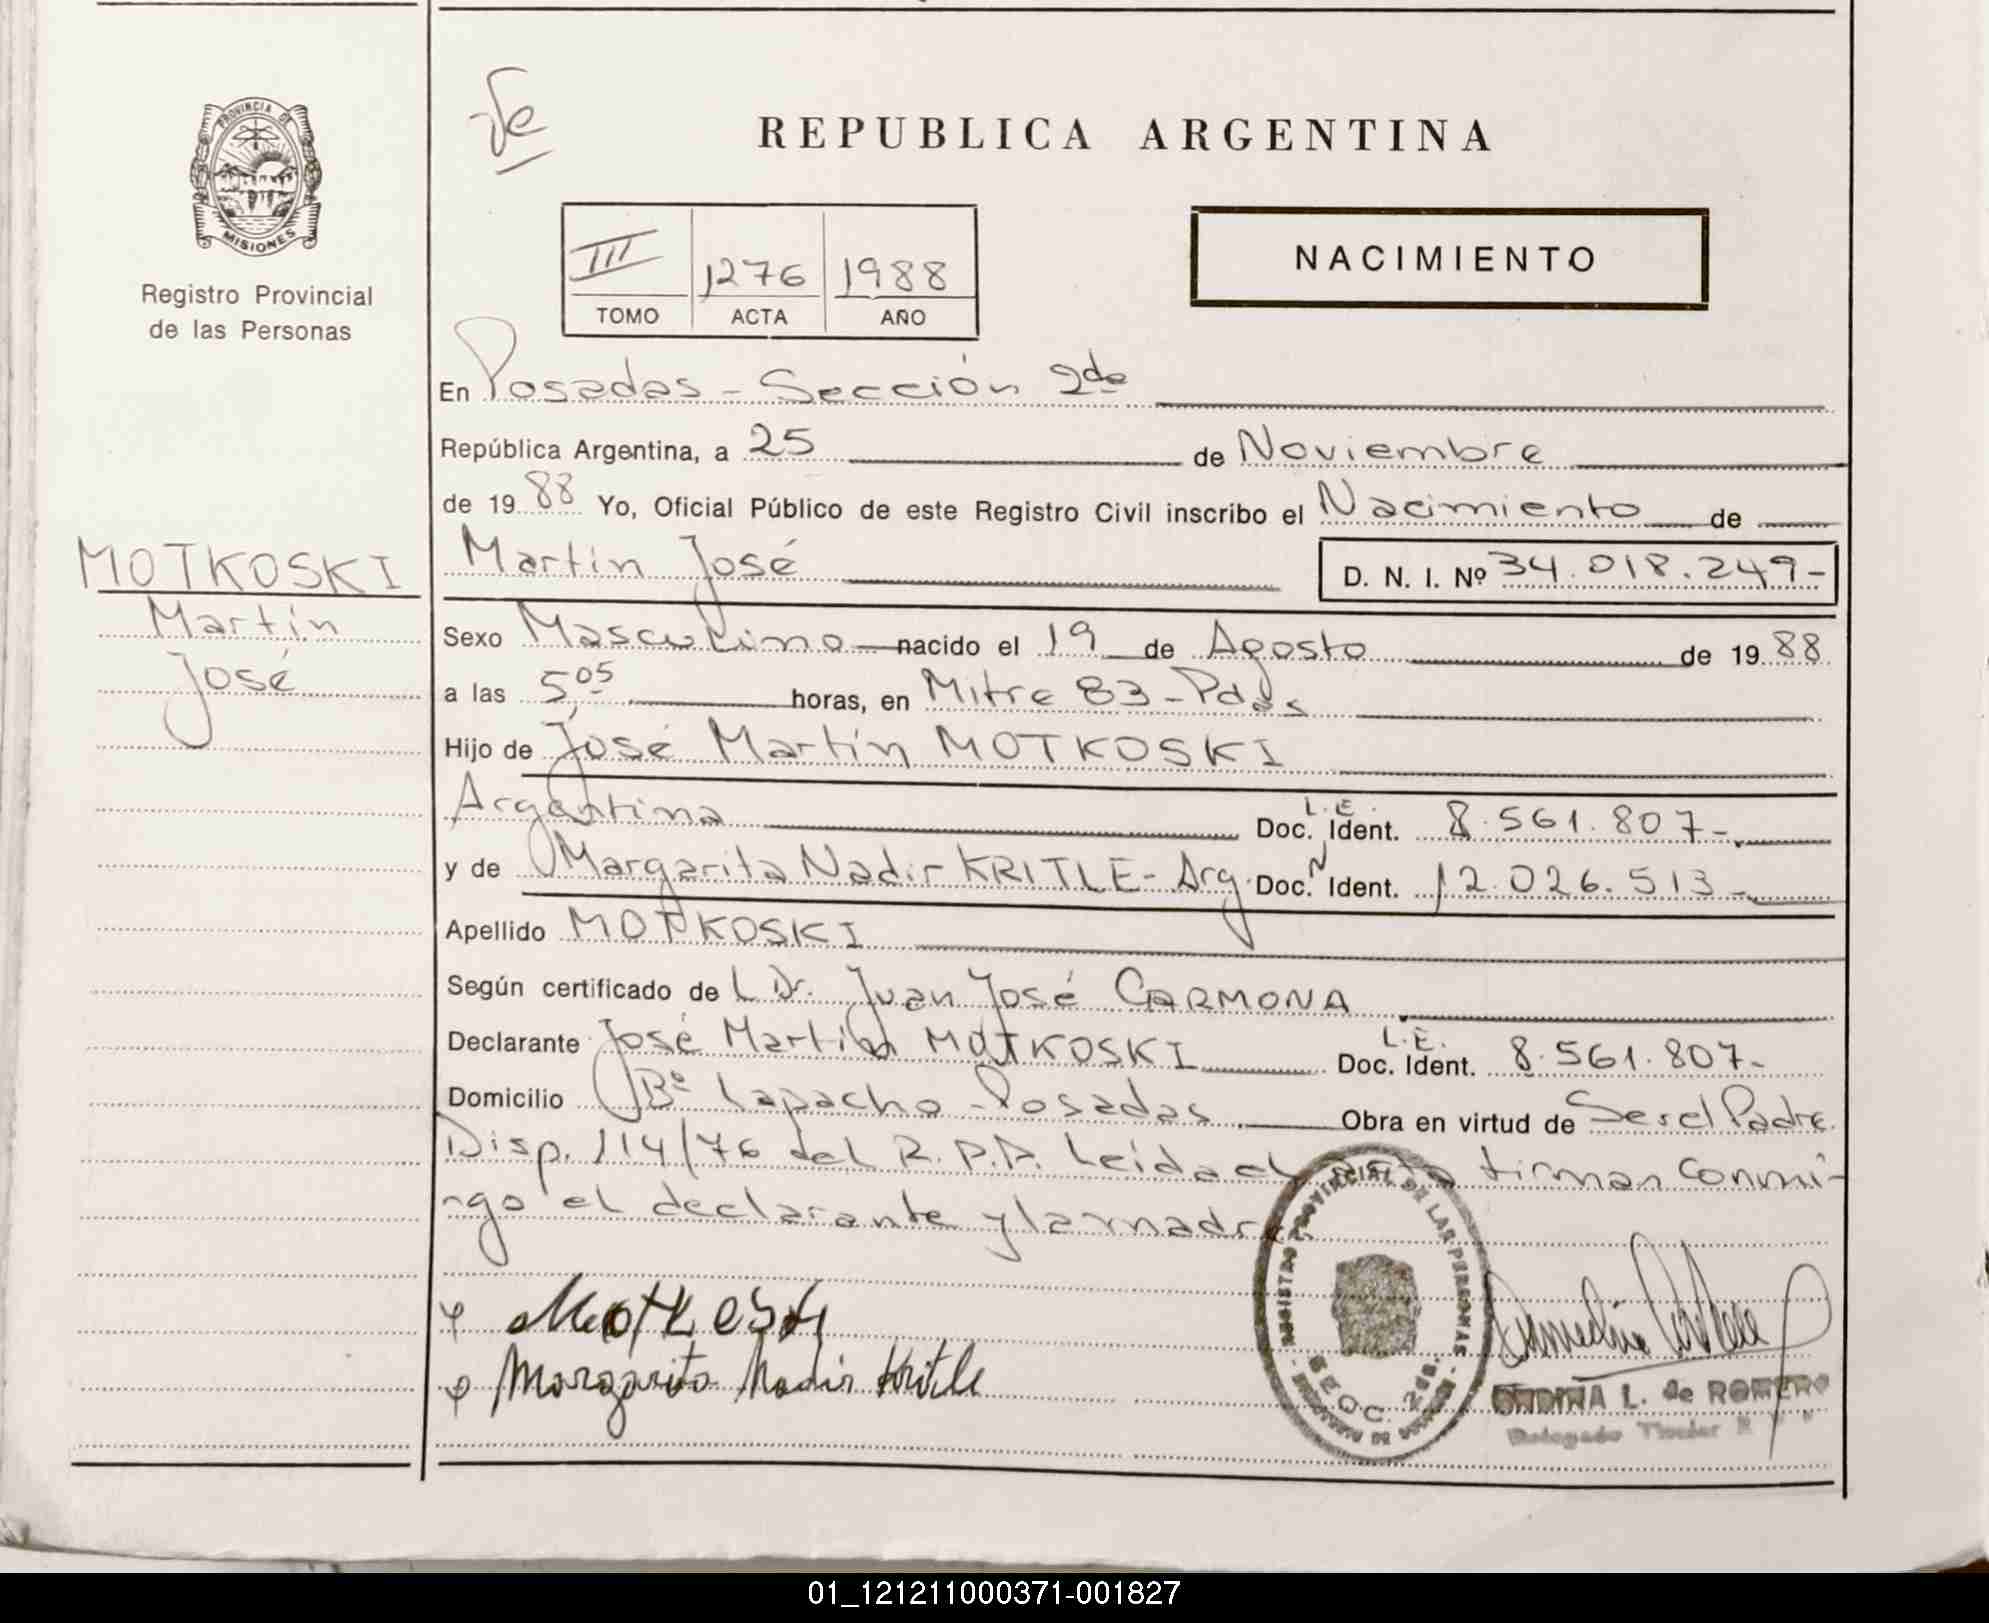 PROVINCIA DE
MISIONES
Registro Provincial
de las Personas
MOTKOSKI
Martín
José
REPUBLICA ARGENTINA
NACIMIENTO
III 1276 1988
TOMO ACTA AÑO
En Posadas - Sección 2da
República Argentina, a 25 de Noviembre
de 1988 Yo, Oficial Público de este Registro Civil inscribo el Nacimiento de
Martín José D. N. I. Nº 34.018.249-
Sexo Masculino nacido el 19 de Agosto de 1988
a las 5,05 horas, en Mitre 83 - Pdas
Hijo de José Martín MOTKOSKI
Argentina L.E. Doc. Ident. 8.561.807-
y de Margarita Nadir KRITLE - Arg. Doc. N Ident. 12.026.513-
Apellido MOTKOSKI
Según certificado de L Dr. Juan José CARMONA
Declarante José Martín MOTKOSKI L.E. Doc. Ident. 8.561.807-
Domicilio Bº Lapacho - Posadas Obra en virtud de Ser el Padre
Disp. 114/76 del R.P.P. Leída el Acta firman conmi-
go el declarante y la madre
Motkoski
Margarita Nadir Kritle
REGISTRO PROVINCIAL DE LAS PERSONAS
SECC. 2da.
ONDINA L. de ROMERO
Delegado Titular R
01_121211000371-001827